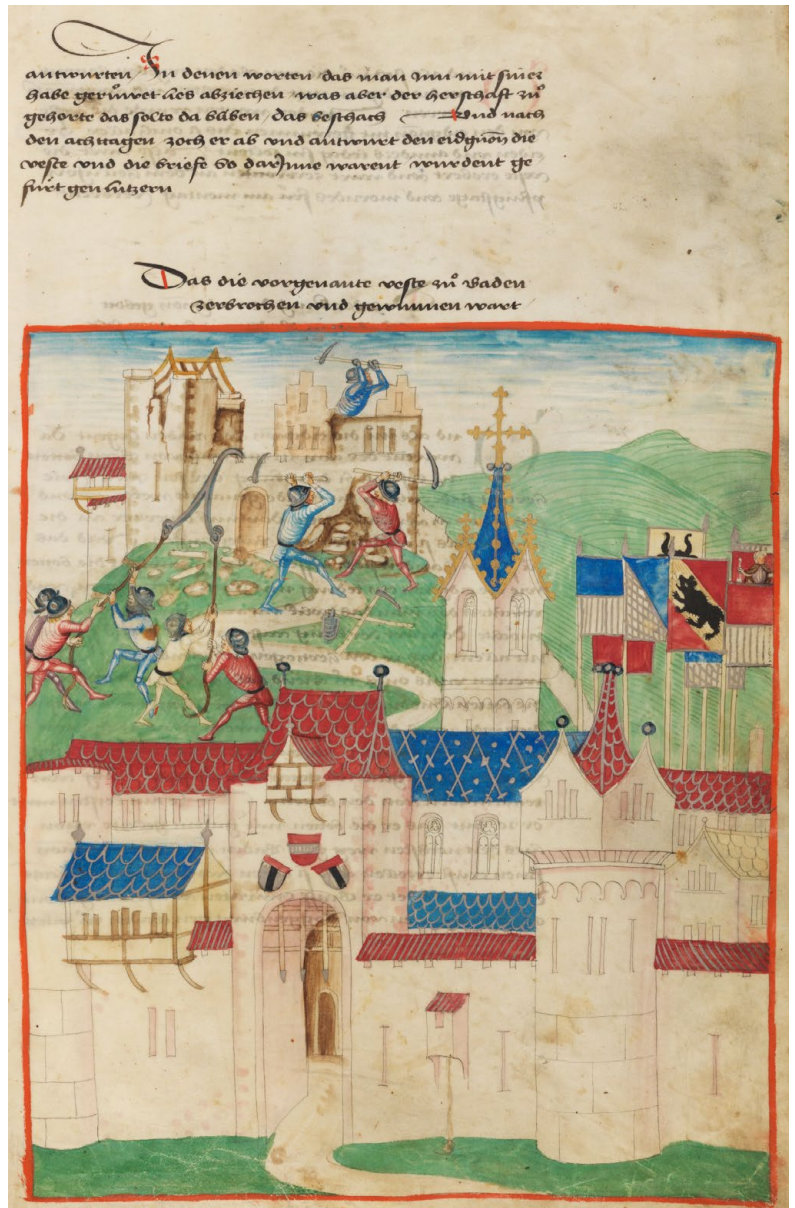 antwurten In denen worten das man inn mit siner
habe gerůwet lies abziechen was aber der herschaft zů
gehorte das solte da bliben das beschach Und nach
den achttagen zoch er ab und antwurt den eidgnon die
veste und die briefe so darInne warent wurdent ge
fürt gen lutzern
Das die vorgenante veste zů Baden
zerbrochen und gewunnen wart